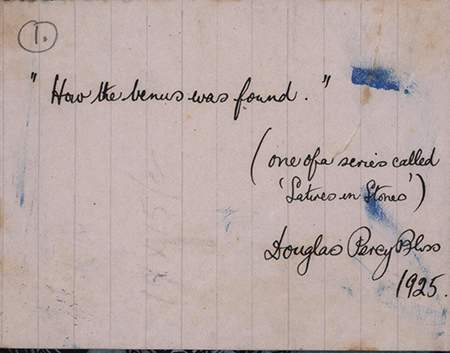 1.
"How the Venus was found."
(one of a series called
'Satires in Stones')
Douglas Percy Bliss
1925.